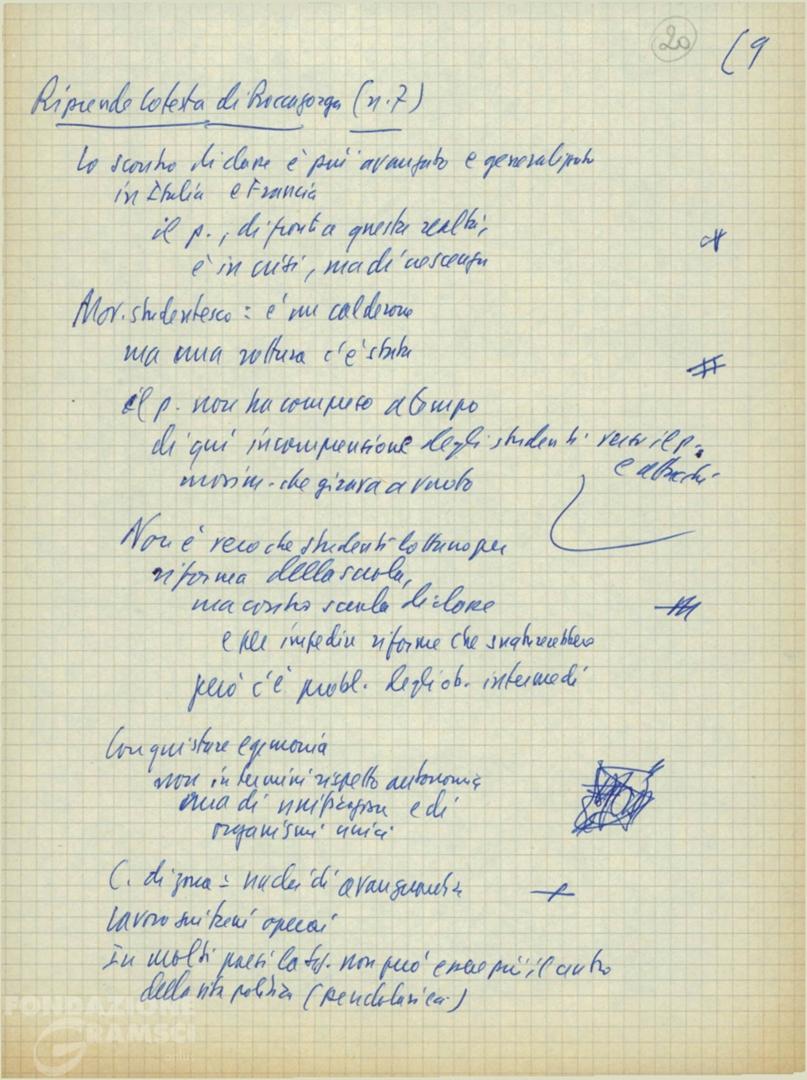 20
(9
Riprende la testa di Roccagorga (n. 7)
Lo scontro di classe è più avanzato e generalizzato
in Italia e Francia
il p., di fronte a questa realtà,
è in crisi, ma di crescenza
Mov. studentesco = è un calderone
ma una rottura c'è stata
il p. non ha compreso a tempo
di qui incomprensione degli studenti verso il p.
e attacchi
movim. che girava a vuoto
Non è vero che studenti lottano per
riforma della scuola,
ma contro scuola di classe
e per impedire riforme che snaturerebbero
però c'è probl. degli ob. intermedi
Conquistare egemonia
non in termini rispetto autonomia
ma di unificazione e di
organismi unici
C. di zona = nuclei di avanguardia
lavoro sui temi operai
In molti paesi la sez. non può essere più il centro
della vita politica (pendolarica)
FONDAZIONE
GRAMSCI